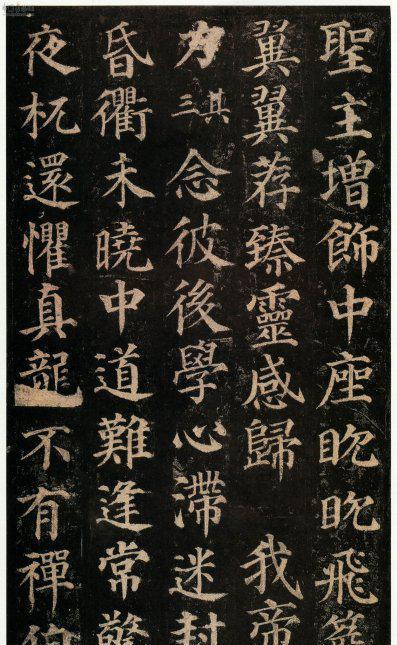 聖主增飾中座眈眈飛
翼翼荐臻靈感歸 我帝
力其三念彼後學心滯迷封
昏衢未曉中道難逢常驚
夜杌還懼真龍不有禪伯